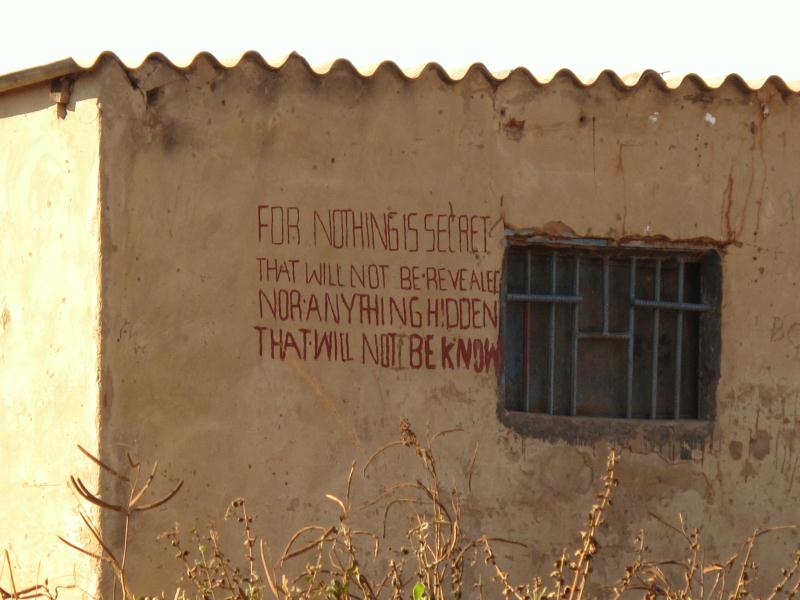 FOR NOTHING IS SECRET
THAT WILL NOT BE REVEALED
NOR ANYTHING HIDDEN
THAT WILL NOT BE KNOW